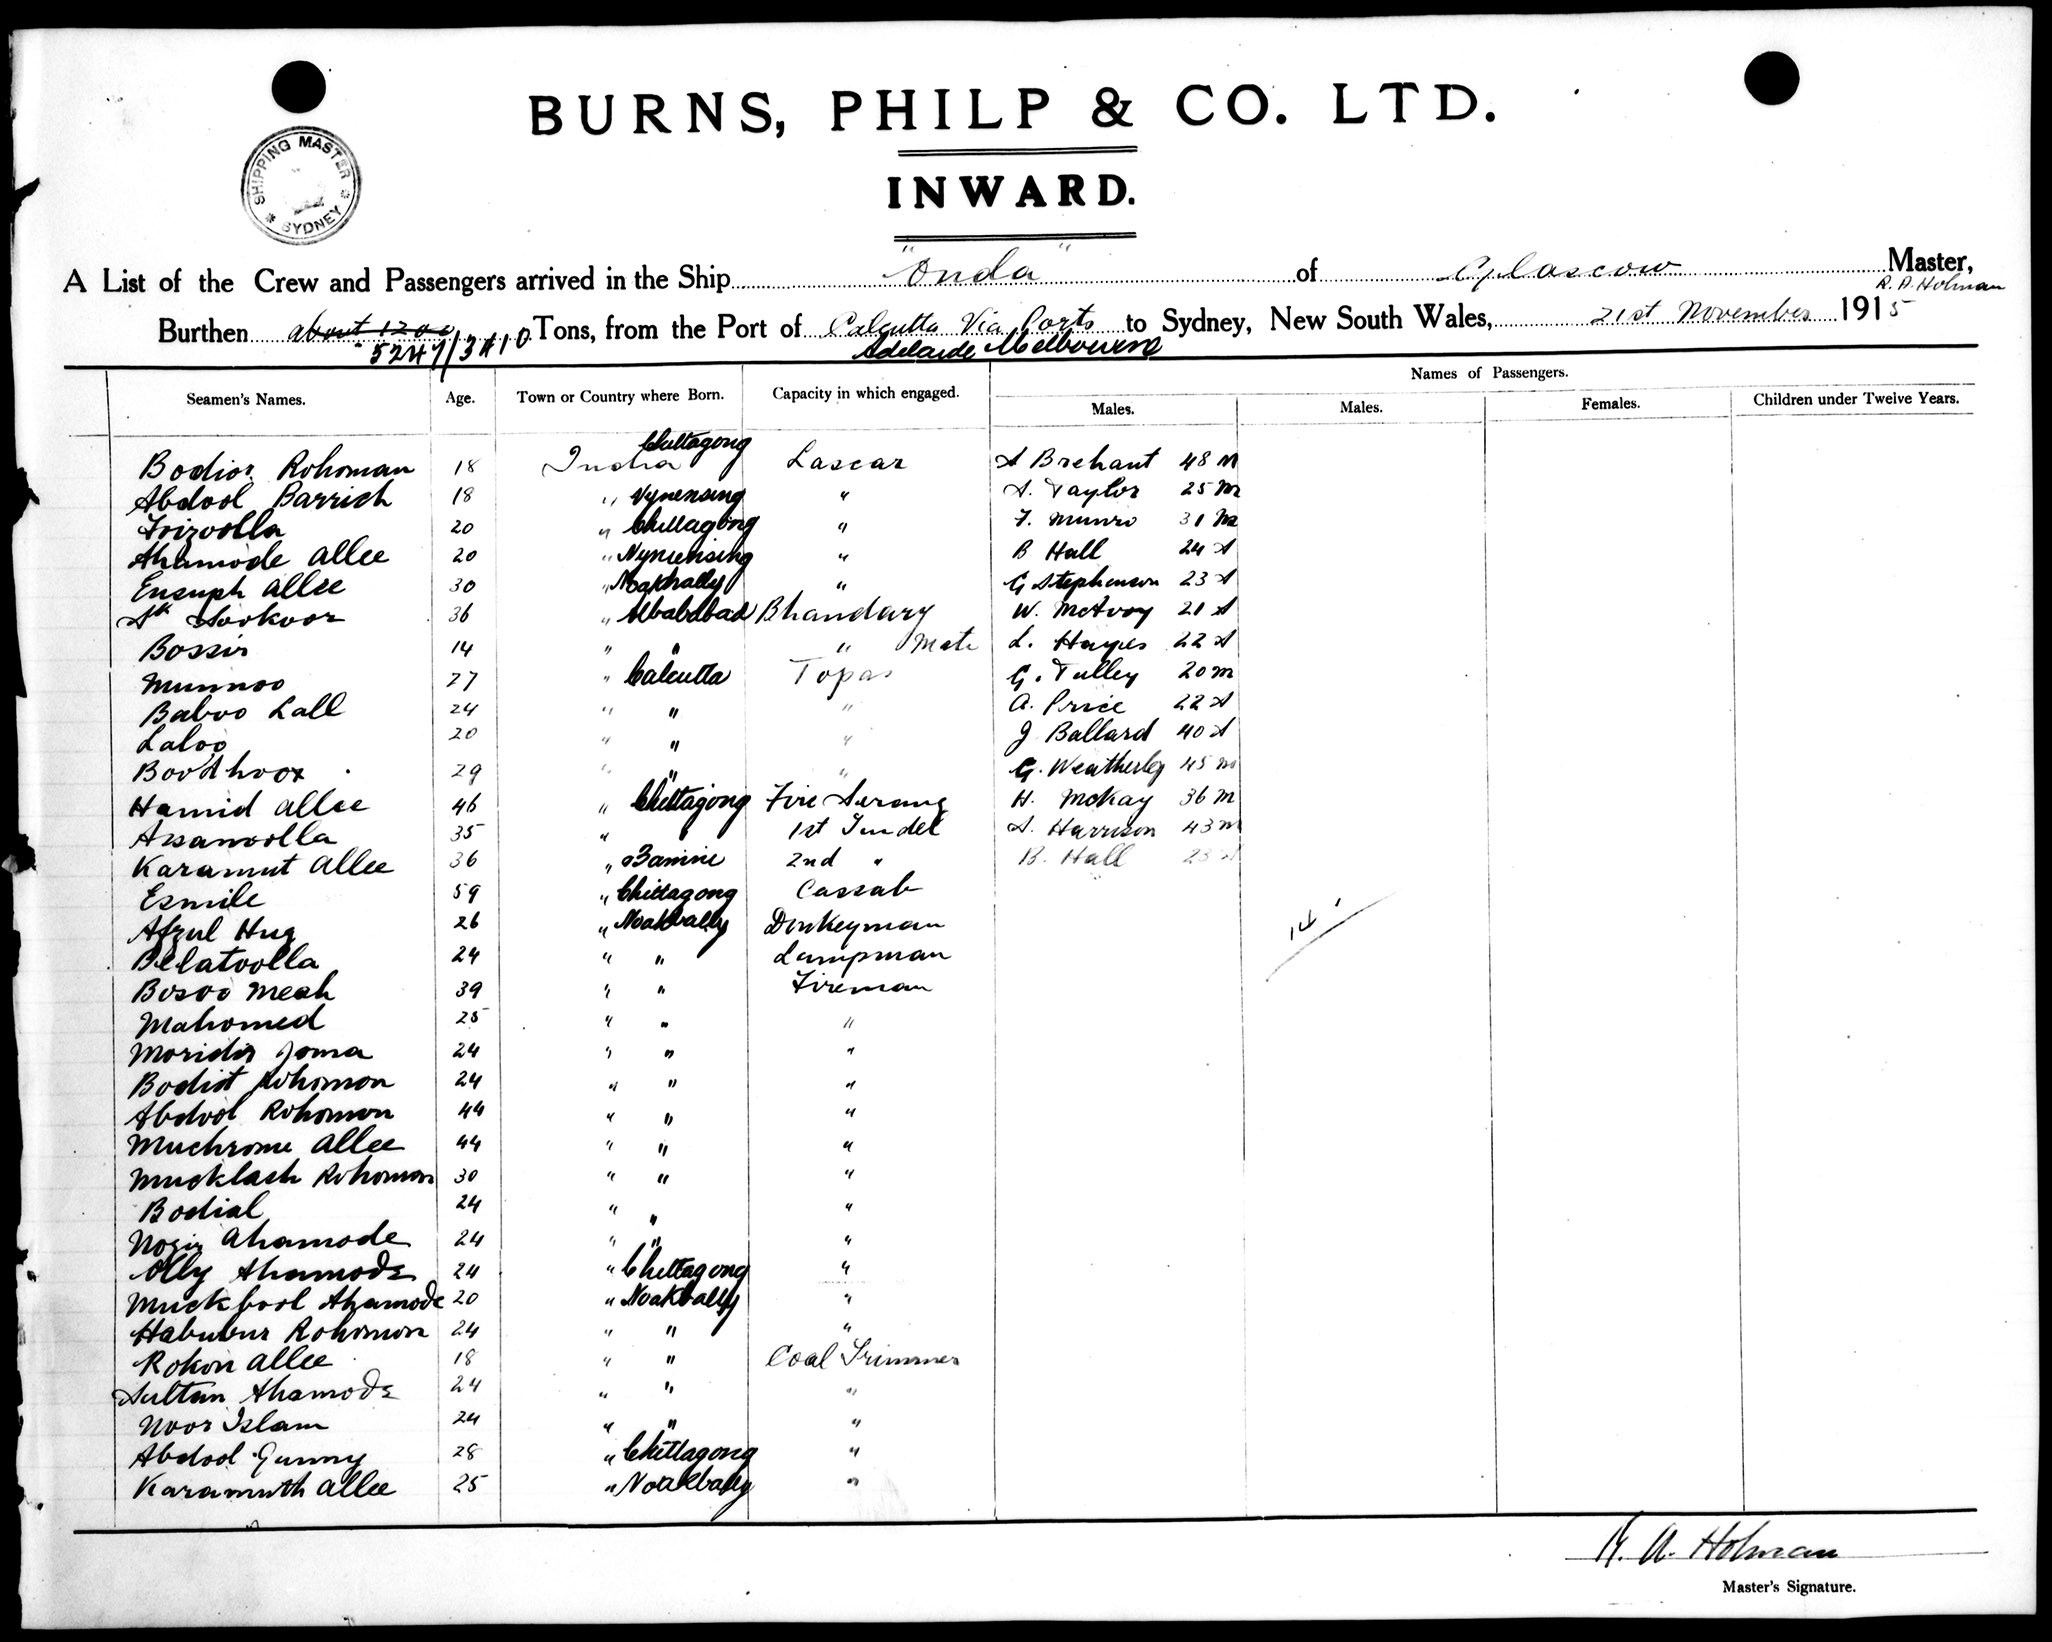 BURNS, PHILP & CO. LTD.
INWARD.
SHIPPING MASTER
* SYDNEY *
A List of the Crew and Passengers arrived in the Ship "Onda" of Glascow Master,
R. A. Holman
Burthen about 1200 Tons, from the Port of Calcutta Via Ports to Sydney, New South Wales, 21st November 1915
5247/3410 Adelaide Melbourne
Names of Passengers.
Seamen's Names. Age. Town or Country where Born. Capacity in which engaged. Males. Males. Females. Children under Twelve Years.
Bodior Rohoman 18 India Chittagong Lascar A Brehaut 48 M
Abdool Barrich 18 " Nynensing " A. Taylor 25 M
20 " Chittagong " F. Munro 31 M
Ahamode Allee 20 " Nymensing " B Hall 24 S
Eusuph Allee 30 " Noakhally " G Stephenson 23 S
Sk Sookoor 36 " Bhandary W. McAvoy 21 S
Bossir 14 " " " Mate L. Hayes 22 S
Munnoo 27 " Calcutta Topas G. Tulley 20 M
Baboo Lall 24 " " " A. Price 22 S
Laloo 20 " " " J Ballard 40 S
Boodhoor 29 " " " G. Weatherley 45 M
Hamid Allee 46 " Chittagong Fire Serang H. McKay 36 M
Assamoolla 35 " " 1st Tindel S. Harrison 43 M
Karamut Allee 36 " 2nd " B. Hall 23 S
Esmile 59 " Chittagong Cassab
Afzul Huq 26 " Noakhally Donkeyman
Belatoolla 24 " " Lampman
Bosoo Meah 39 " " Fireman
14
Mahomed 25 " " "
Moridir Joma 24 " " "
Bodist Rohomon 24 " " "
Abdool Rohomon 44 " " "
Muchrome Allee 44 " " "
Mucklash Rohomon 30 " " "
Bodial 24 " " "
Nozir Ahamode 24 " " "
Olly Ahamode 24 " Chittagong "
Muckbool Ahamode 20 " Noakhally "
Habubur Rohomon 24 " " "
Rokon Allee 18 " " Coal Trimmer
Sultan Ahamode 24 " " "
Noor Islam 24 " " "
Abdool Gunny 28 " Chittagong "
Karamuth Allee 25 " Noakhally "
R. A. Holman
Master's Signature.